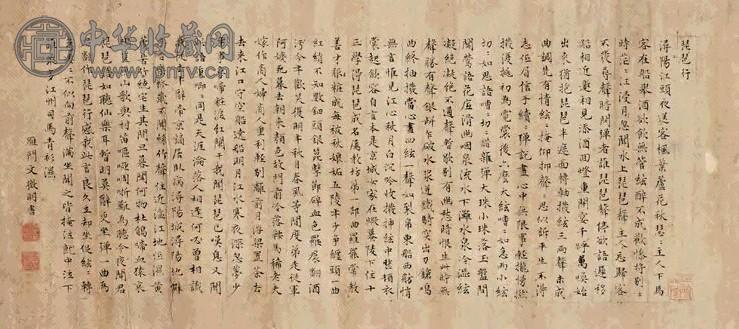 琵琶行
潯陽江頭夜送客楓葉蘆花秋瑟〻主人下馬
客在船舉酒欲飲無管絃醉不成歡慘將別〻
時茫〻江浸月忽聞水上琵琶聲主人忘歸客
不發尋聲暗問彈者誰琵琶聲停欲語遲移
船相近邀相見添酒回燈重開宴千呼萬喚始
出來猶抱琵琶半遮面轉軸撥絃三兩聲未成
曲調先有情絃〻掩抑聲〻思似訴平生不得
志低眉信手續〻彈說盡心中無限事輕攏慢撚
撥復挑初為霓裳後六么大絃嘈〻如急雨小絃
切〻如私語嘈〻切〻錯雜彈大珠小珠落玉盤間
關鶯語花底滑幽咽泉流水下灘水泉冷澀絃
凝絕凝絕不通聲暫歇別有幽愁暗恨生此時無
聲勝有聲銀瓶乍破水漿迸鐵騎突出刀鎗鳴
曲終抽撥當心畫四絃一聲如裂帛東船西舫悄
無言惟見江心秋月白沉吟收撥插絃中整頓衣
裳起斂容自言本是京城女家在蝦蟇陵下住十
三學得琵琶成名屬教坊第一部曲罷常教
善才服粧成每被秋娘妬五陵年少爭纏頭一曲
紅綃不知數鈿頭銀篦擊節碎血色羅裙翻酒
污今年歡笑復明年秋月春風等閒度弟走從軍
阿姨死暮去朝來顏色故門前冷落鞍馬稀老大
嫁作商人婦商人重利輕別離前月浮梁買茶去
去來江口守空船遶船明月江水寒夜深忽夢少
年事夢啼粧淚紅闌干我聞琵琶已嘆息又聞
此語重唧〻同是天涯淪落人相逢何必曾相識
辭帝京謫居臥病潯陽城潯陽地僻
終歲不聞絲竹聲住近湓江地低濕黃
蘆苦竹繞宅生其間旦暮聞何物杜鵑啼血猿哀
山歌與村笛嘔啞嘲哳難為聽今夜聞君
琵琶語如聽仙樂耳暫明莫辭更坐彈一曲為
君翻作琵琶行感我此言良久立却坐促絃〻轉
急淒〻不似向前聲滿坐聞之皆掩泣就中泣下
誰最多江州司馬青衫濕
雁門文徵明書
中华收藏网